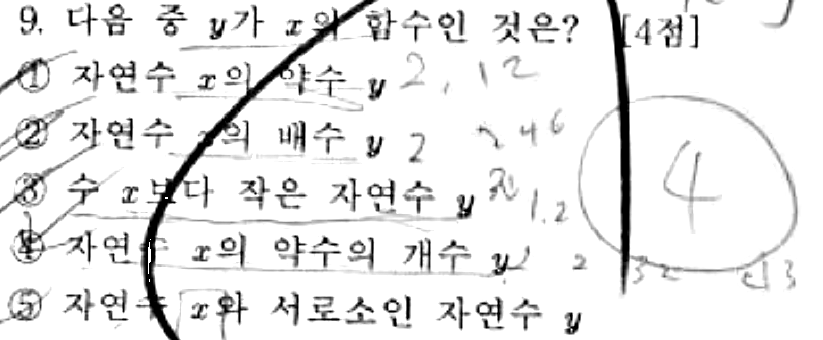 9. 다음 중 y가 x의 함수인 것은? [4점]
① 자연수 x의 약수 y 2, 12
② 자연수 x의 배수 y 2 2 4 6
③ 수 x보다 작은 자연수 y 1. 2
④ 자연수 x의 약수의 개수 y 2
⑤ 자연수 x와 서로소인 자연수 y
4